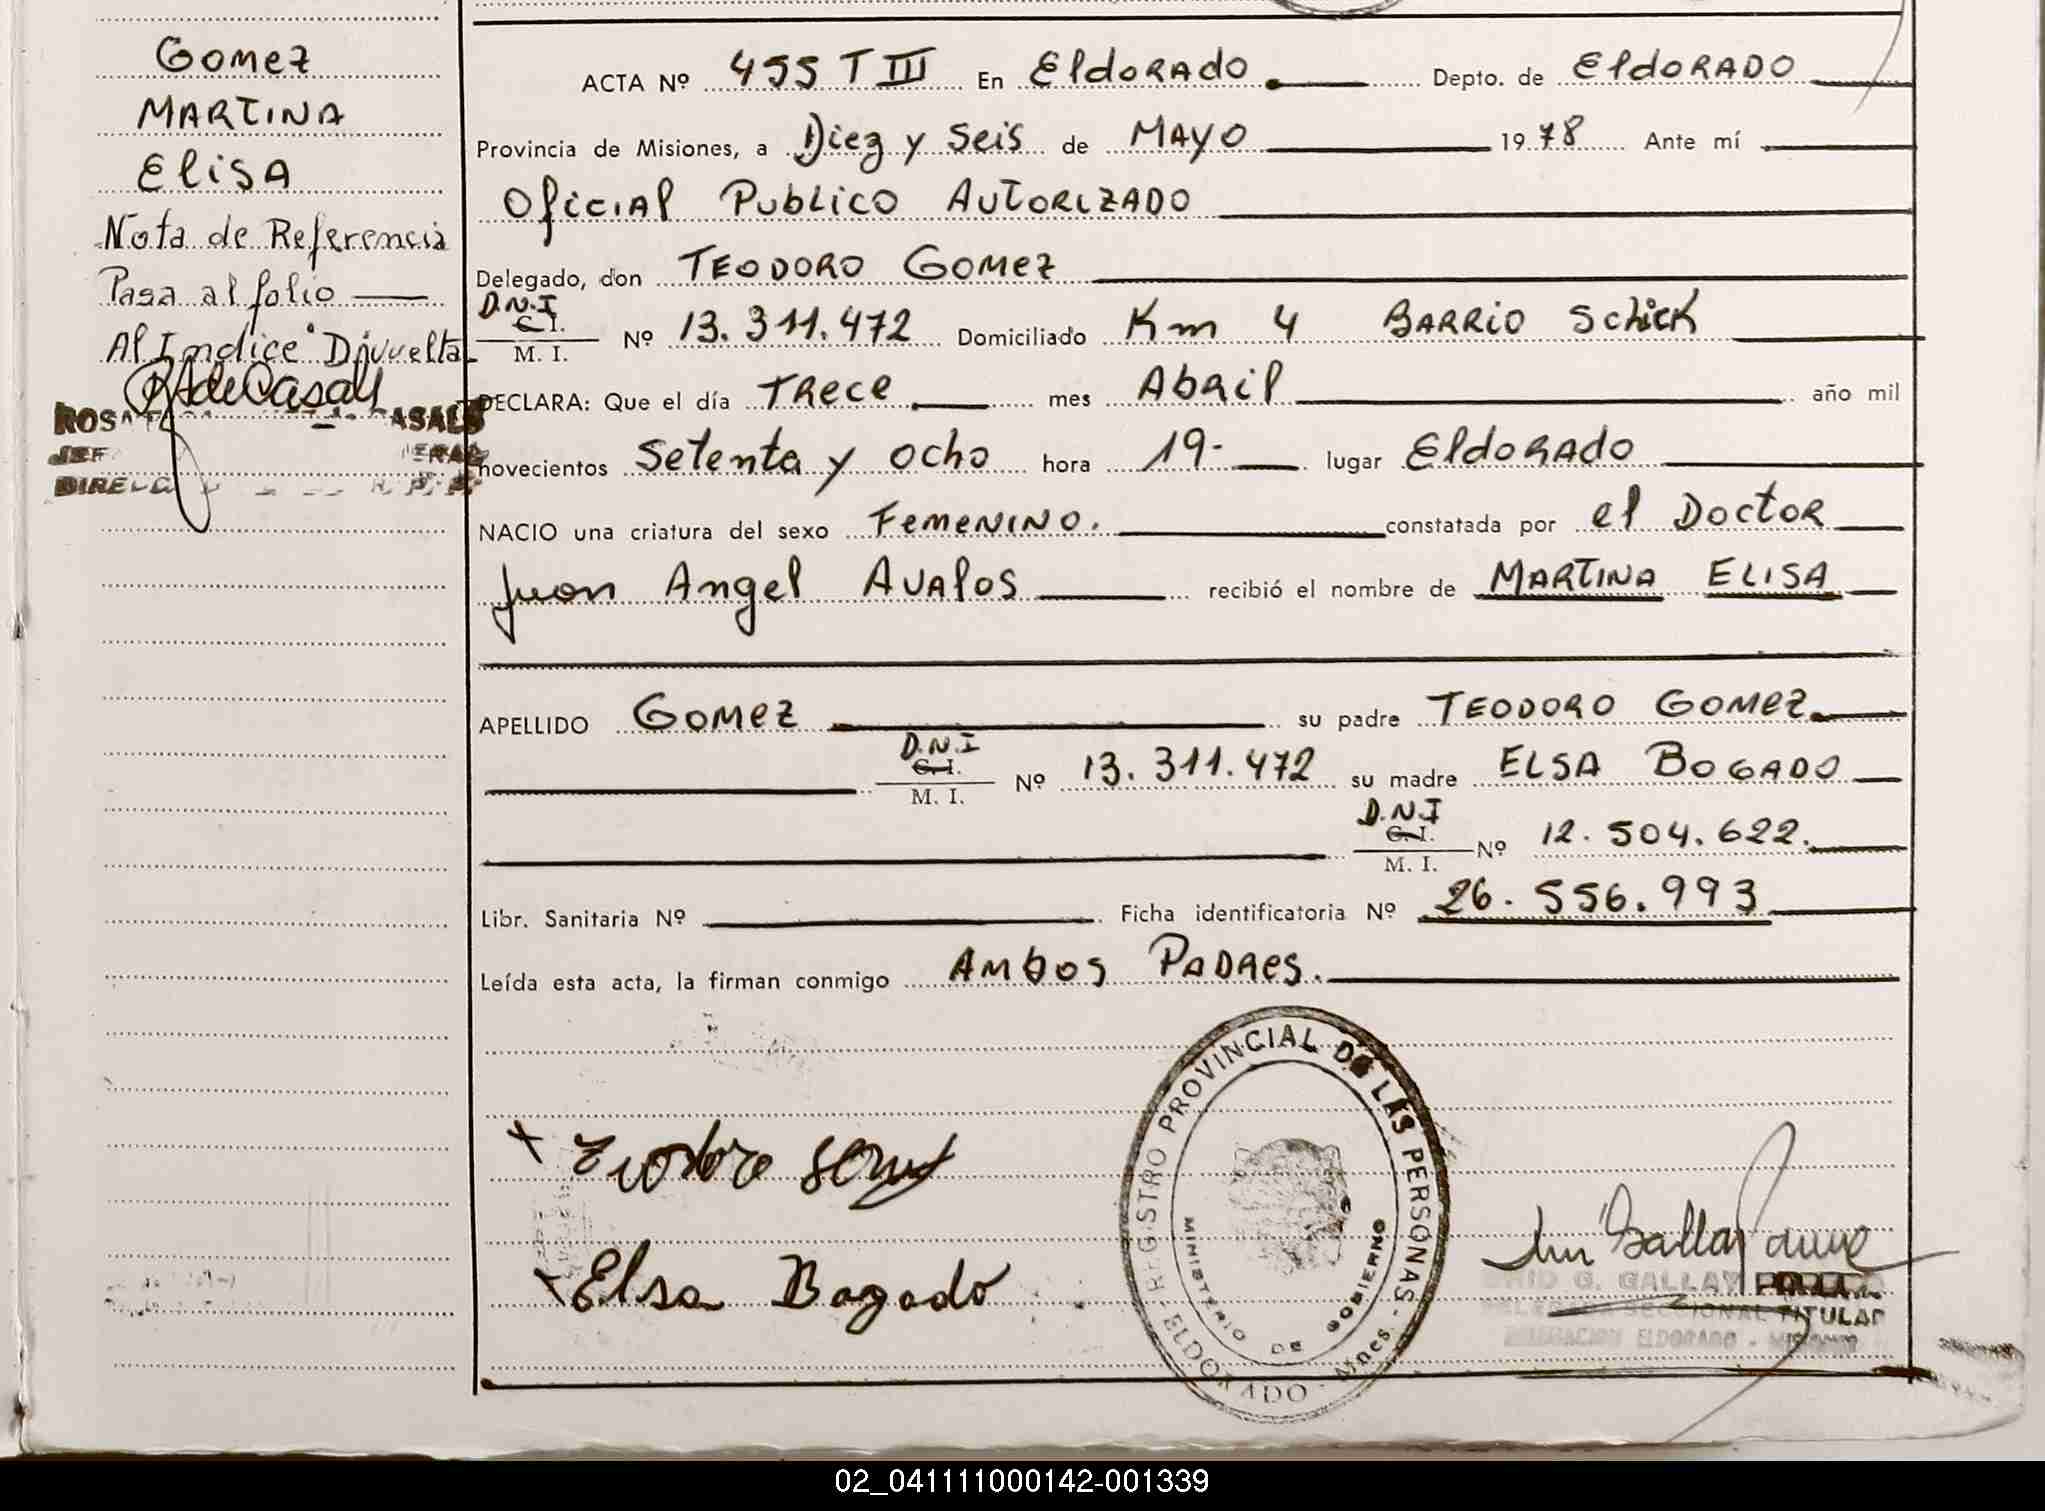 Gomez
MARTINA
ElisA
Nota de Referencia
Pasa al folio
Al Indice
CASALS
ACTA Nº 455 T III En EldoRADO Depto. de EldoRADO
Provincia de Misiones, a Diez y Seis de MAYO 1978 Ante mí
OficiAl PUbLiCO AUTORIZADO
Delegado, don TEODORO GOMEZ
D.N.I
C.I.
M. I. Nº 13.311.472 Domiciliado Km 4 BARRIO SCHICK
DECLARA: Que el día TRece mes Abril año mil
novecientos Setenta y ocho hora 19- lugar EldoRADO
NACIO una criatura del sexo FemeNINO. constatada por el DoctoR
Juan Angel AvAlos recibió el nombre de MARTINA ELISA
APELLIDO GOMEZ su padre TEODORO GOMEZ
D.N.I
C.I.
M. I. Nº 13.311.472 su madre ELSA BOGADO
D.N.I
C.I.
M. I. Nº 12.504.622.
Libr. Sanitaria Nº Ficha identificatoria Nº 26.556.993
Leída esta acta, la firman conmigo AMbos PADRes.
REGISTRO PROVINCIAL DE LAS PERSONAS
MINISTERIO DE GOBIERNO
ELDORADO - Mnes.
Elsa Bogado
G. GALLAY
SECCIONAL TITULAR
DELEGACION ELDORADO - MISIONES
02_041111000142-001339